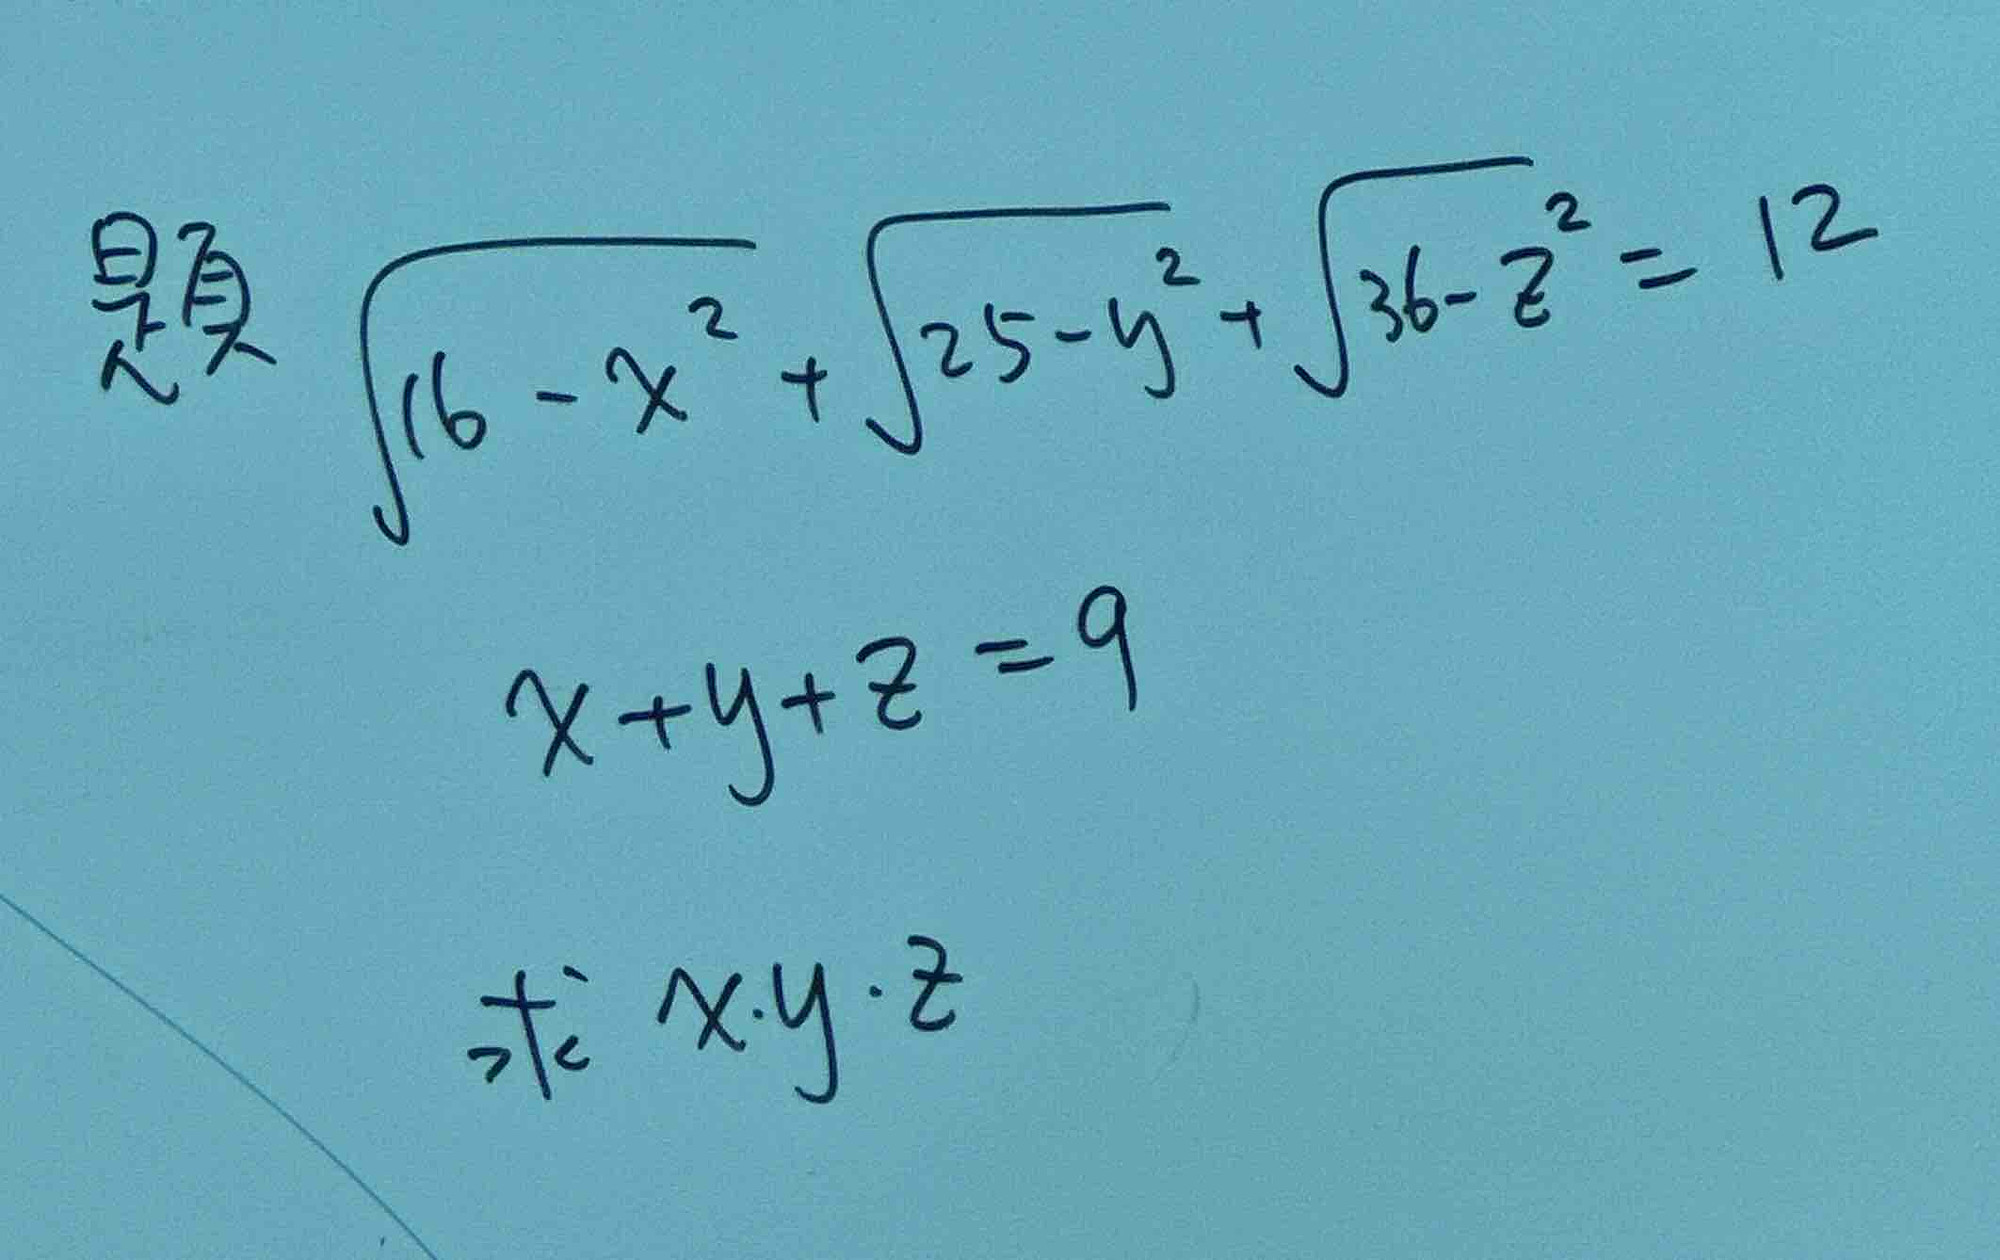 題 √(16-x²) + √(25-y²) + √(36-z²) = 12
x+y+z=9
求 x·y·z